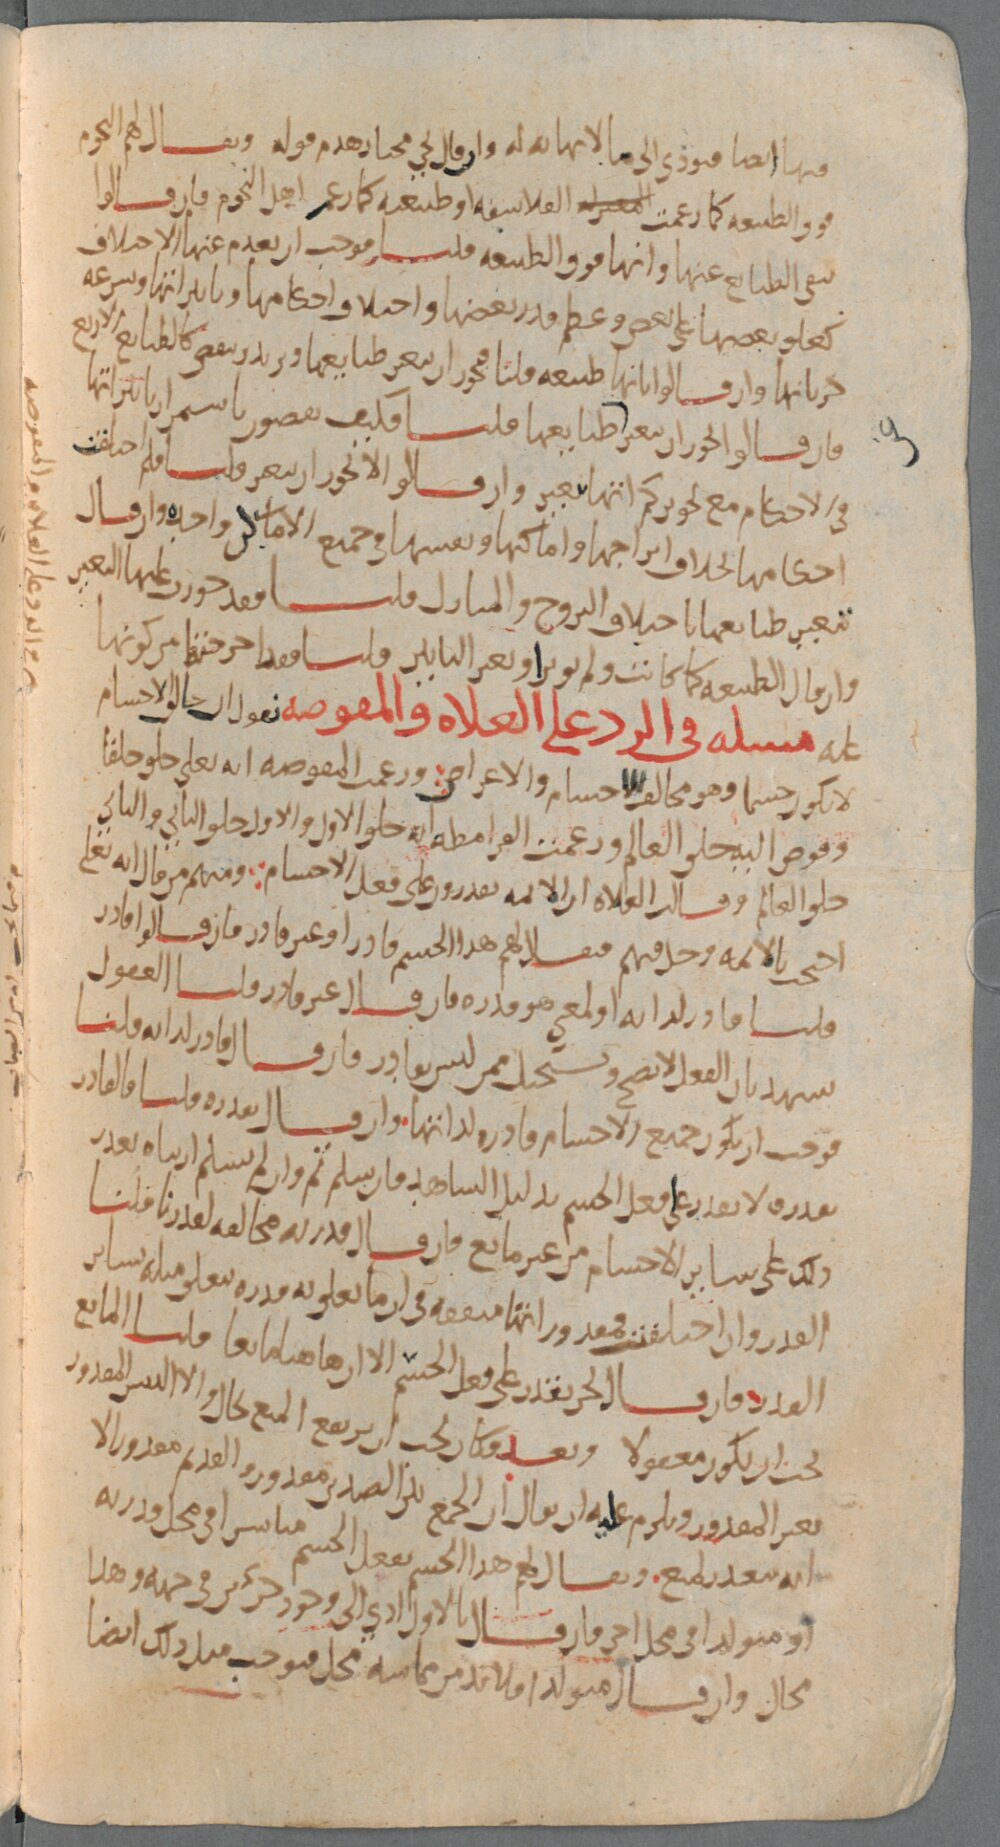 فيها ايضا فيؤدي الى ما لا نهاية له وان قال لحي مختار هدم قوله ويقال لهم النجوم
قوو الطبيعه كما زعمت الفلاسفه او طبيعيه كما زعم اهل النجوم فان قالوا
بنفي الطبايع عنها وانها قوو الطبيعه قلنا فوجب ان يعدم عنها الاختلاف
كعلو بعضها على بعض وعظم قدر بعضها واختلاف احكامها وتاثيراتها وسرعة
جريانها وان قالوا بانها طبيعه قلنا فيجوز ان يتغير طبايعها ويزيد وينقص كالطبايع الاربع
فان قالوا لا يجوز ان يتغير طبايعها قلنا فكيف تقضون باستمرار تاثيراتها
في الاحكام مع تجويزكم انها تتغير وان قالوا لا يجوز ان يتغير قلنا فلم اختلفت
احكامها بخلاف ابراجها واماكنها ونفسها في جميع الاماكن واحده وان قال
تتغير طبايعها باختلاف البروج والمنازل قلنا فقد جوزت عليها التغير
وان قال الطبيعه كما كانت ولم يوثر او تغير التاثير قلنا فقد اخرجتها من كونها
علة مسله في الرد على الغلاه والمفوضه نقول ان خالق الاجسام
لا يكون جسما وهو مخالف للاجسام والاعراض وزعمت المفوضه انه تعالى خلق خلقا
وفوض اليه خلق العالم وزعمت القرامطه انه خلق الاول والاول خلق الثاني والثاني
خلق العالم وقالت الغلاه ان الايمه يقدرون على فعل الاجسام ومنهم من قال انه تعلى
احتجب بالائمه وحل فيهم فيقال لهم هذا الجسم قادر او غير قادر فان قالوا قادر
قلنا قادر لذاته او لمعنى هو قدره فان قال غير قادر قلنا العقول
تشهد بان الفعل لا يصح ويستحيل ممن ليس بقادر فان قال قادر لذاته قلنا
فوجب ان يكون جميع الاجسام قادره لذاتها وان قال بقدره قلنا فالقادر
بقدره لا يقدر على فعل الجسم بدليل الشاهد فان سلم تم وان لم يسلم اريناه تعذر
ذلك على ساير الاجسام من غير مانع فان قال قدرته مخالفه لقدرنا قلنا
القدر وان اختلفت فمقدوراتها متفقه في ان ما تعلق به قدره يتعلق بمثله ساير
القدر فان قال نحن نقدر على فعل الجسم الا ان هاهنا مانعا قلنا المانع
يجب ان يكون معقولا وبعد فكان يجب ان يرتفع المنع بحال والا التبس المقدور
بغير المقدور ويلزم عليه ان يقال ان الجمع بين الضدين مقدور والقديم مقدور الا
انه يتعذر لمنع ويقال لهم هذا الجسم يفعل الجسم مباشرا في محل قدرته
او متولدا في محل اخر فان قال بالاول ادي الى وجود جزئين في جهه وهذا
محال وان قال متولدا فلا بد من مماسة محل فيوجب مثل ذلك ايضا
في الرد على الغلاه والمفوضه